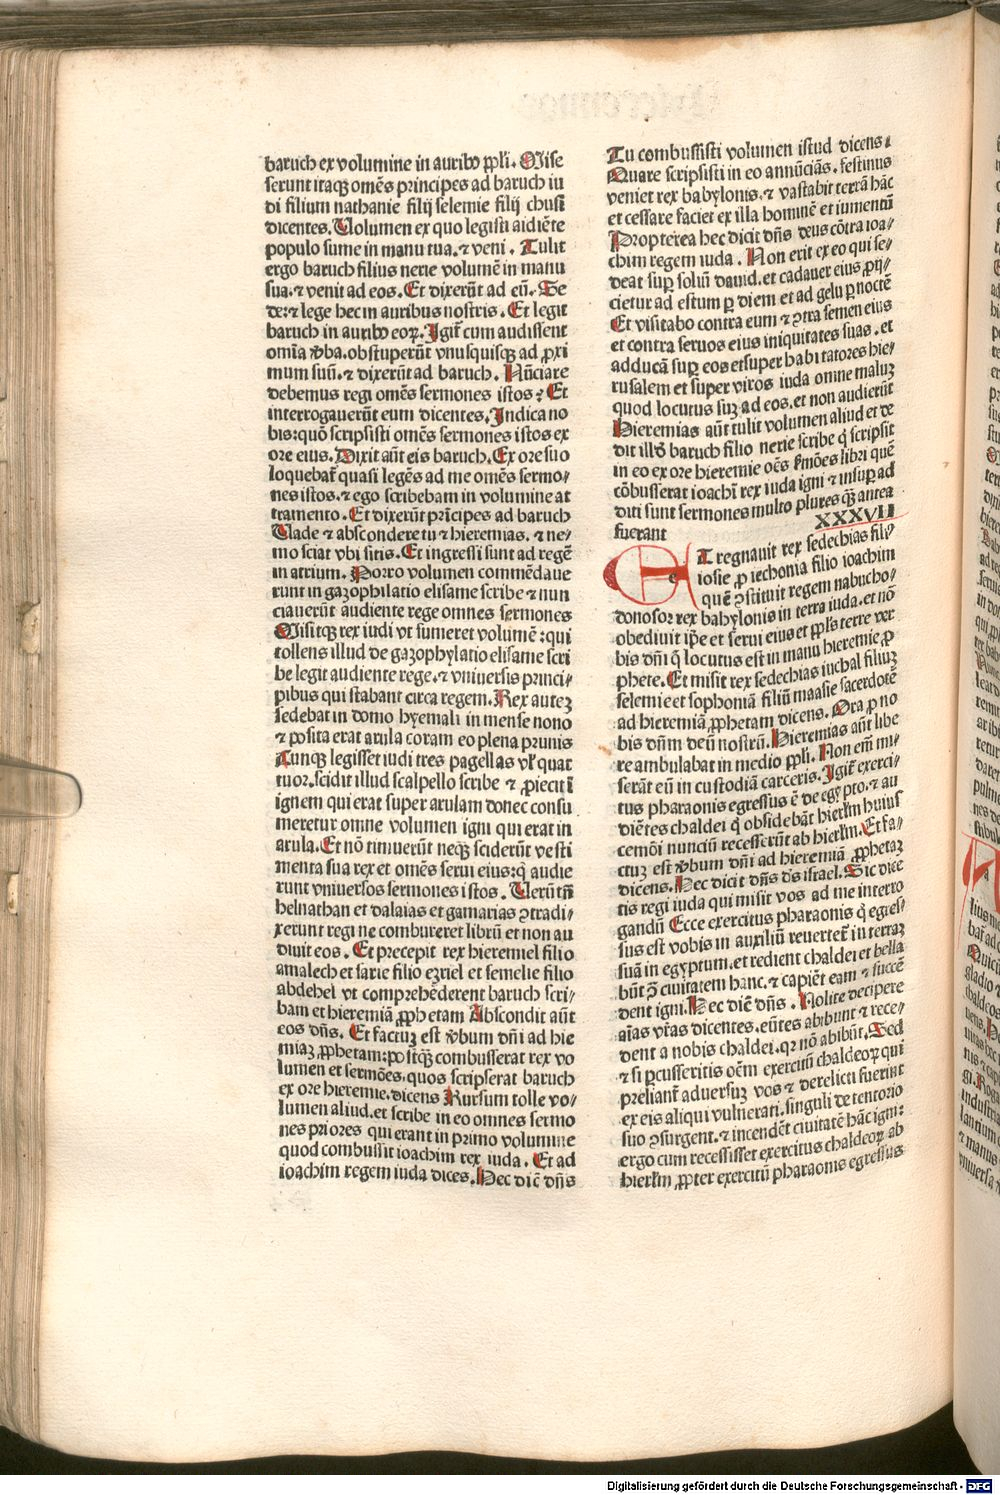 baruch ex volumine in auribꝰ ppl̄i. Mise
serunt itaqꝫ om̄es principes ad baruch iu
di filium nathanie filij selemie filij chusi
dicentes. Uolumen ex quo legisti aidiēte
populo sume in manu tua. ⁊ veni. Tulit
ergo baruch filius nerie volumē in manu
sua. ⁊ venit ad eos. Et dixerūt ad eū. Se
de: ⁊ lege hec in auribus nostris. Et legit
baruch in auribꝰ eoꝝ. Igit̄ cum audissent
om̄ia v̄ba. obstuperūt vnusquisqꝫ ad ꝓxi
mum suū. ⁊ dixerūt ad baruch. Nūciare
debemus regi om̄es sermones istos? Et
interrogauerūt eum dicentes. Indica no
bis: quō scripsisti om̄es sermones istos ex
ore eius. Dixit aūt eis baruch. Ex ore suo
loquebat̄ quasi legēs ad me om̄es sermo/
nes istos. ⁊ ego scribebam in volumine at
tramento. Et dixerūt prīcipes ad baruch
Uade ⁊ abscondere tu ⁊ hieremias. ⁊ ne/
mo sciat vbi sitis. Et ingressi sunt ad regē
in atrium. Porro volumen commēdaue
runt in gazophilatio elisame scribe ⁊ nun
ciauerūt audiente rege omnes sermones
Misitqꝫ rex iudi vt sumeret volumē: qui
tollens illud de gazophylatio elisame scri
be legit audiente rege. ⁊ vniuersis princi/
pibus qui stabant circa regem. Rex auteꝫ
sedebat in domo hyemali in mense nono
⁊ posita erat arula coram eo plena prunis
Cunqꝫ legisset iudi tres pagellas vl̄ quat
tuor. scidit illud scalpello scribe ⁊ ꝓiecit ī
ignem qui erat super arulam donec consu
meretur omne volumen igni qui erat in
arula. Et nō timuerūt neqꝫ sciderūt vesti
menta sua rex et om̄es serui eius: q̄ audie
runt vniuersos sermones istos. Uerūtn̄
helnathan et dalaias et gamarias ꝯtradi/
xerunt regi ne combureret librū et non au
diuit eos. Et precepit rex hieremiel filio
amalech et sarie filio ezriel et semelie filio
abdehel vt comprehēderent baruch scri/
bam et hieremiā ꝓphetam Abscondit aūt
eos dn̄s. Et factuꝫ est v̄bum dn̄i ad hie
miaꝫ ꝓphetam: postqꝫ̄ combusserat rex vo
lumen et sermōes. quos scripserat baruch
ex ore hieremie. dicens Rursum tolle vo/
lumen aliud. et scribe in eo omnes sermo
nes priores qui erant in primo volumine
quod combussit ioachim rex iuda. Et ad
ioachim regem iuda dices. Hec dic̄ dn̄s
Tu combussisti volumen istud dicens:
Quare scripsisti in eo annūciās. festinus
veniet rex babylonis. ⁊ vastabit terrā hāc
et cessare faciet ex illa hominē et iumentū
Propterea hec dicit dn̄s deus cōtra ioa/
chim regem iuda. Non erit ex eo qui se/
deat suꝑ soliū dauid. et cadauer eius ꝓij/
cietur ad estum ꝑ diem et ad gelu ꝑ noctē
Et visitabo contra eum ⁊ ꝯtra semen eius
et contra seruos eius iniquitates suas. et
adducā suꝑ eos et super habitatores hie/
rusalem et super viros iuda omne maluꝫ
quod locutus suꝫ ad eos. et non audierūt
Hieremias aūt tulit volumen aliud et de
dit illd̄ baruch filio nerie scribe q̄ scripsit
in eo ex ore hieremie oēs s̄mōes libri quē
cōbusserat ioachī rex iuda igni ⁊ insuꝑ ad
diti sunt sermones multo plures qꝫ̄ antea
fuerant
XXXVII
ET regnauit rex sedechias filiꝰ
iosie ꝓ iechonia filio ioachim
quē ꝯstituit regem nabucho/
donosor rex babylonis in terra iuda. et nō
obediuit ip̄e et serui eius et ppl̄s terre ver
bis dn̄i q̄ locutus est in manu hieremie ꝓ
phete. Et misit rex sedechias iuchal filiuꝫ
selemie et sophoniā filiū maasie sacerdotē
ad hieremiā ꝓphetam dicens. Ora ꝓ no
bis dn̄m deū nostrū. Hieremias aūt libe
re ambulabat in medio ppl̄i. Non em̄ mi/
serāt eū in custodiā carceris. Igit̄ exerci/
tus pharaonis egressus ē de egypto. ⁊ au
diētes chaldei q̄ obsidebāt hierl̄m huius
cemōi nunciū recesserūt ab hierl̄m. Et fa/
ctuꝫ est v̄bum dn̄i ad hieremiā ꝓphetaꝫ
dicens. Hec dicit dn̄s ds̄ israel. Sic dice
tis regi iuda qui misit vos ad me interro
gandū Ecce exercitus pharaonis q̄ egres/
sus est vobis in auxiliū reuertet̄ in terraꝫ
suā in egyptum. et redient chaldei et bella
būt ꝯ̄ ciuitatem hanc. ⁊ capiēt eam ⁊ succē
dent igni. Hec dic̄ dn̄s. Nolite decipere
aīas vr̄as dicentes. eūtes abibunt ⁊ rece/
dent a nobis chaldei. qꝛ nō abibūt. Sed
⁊ si ꝑcusseritis oēm exercitū chaldeoꝝ qui
preliant̄ aduersuꝫ vos ⁊ derelicti fuerint
ex eis aliqui vulnerati. singuli de tentorio
suo ꝯsurgent. ⁊ incendēt ciuitatē hāc igni:
ergo cum recessisset exercitus chaldeoꝝ ab
hierl̄m ꝓpter exercitū pharaonis egressus
Digitalisierung gefördert durch die Deutsche Forschungsgemeinschaft - DFG